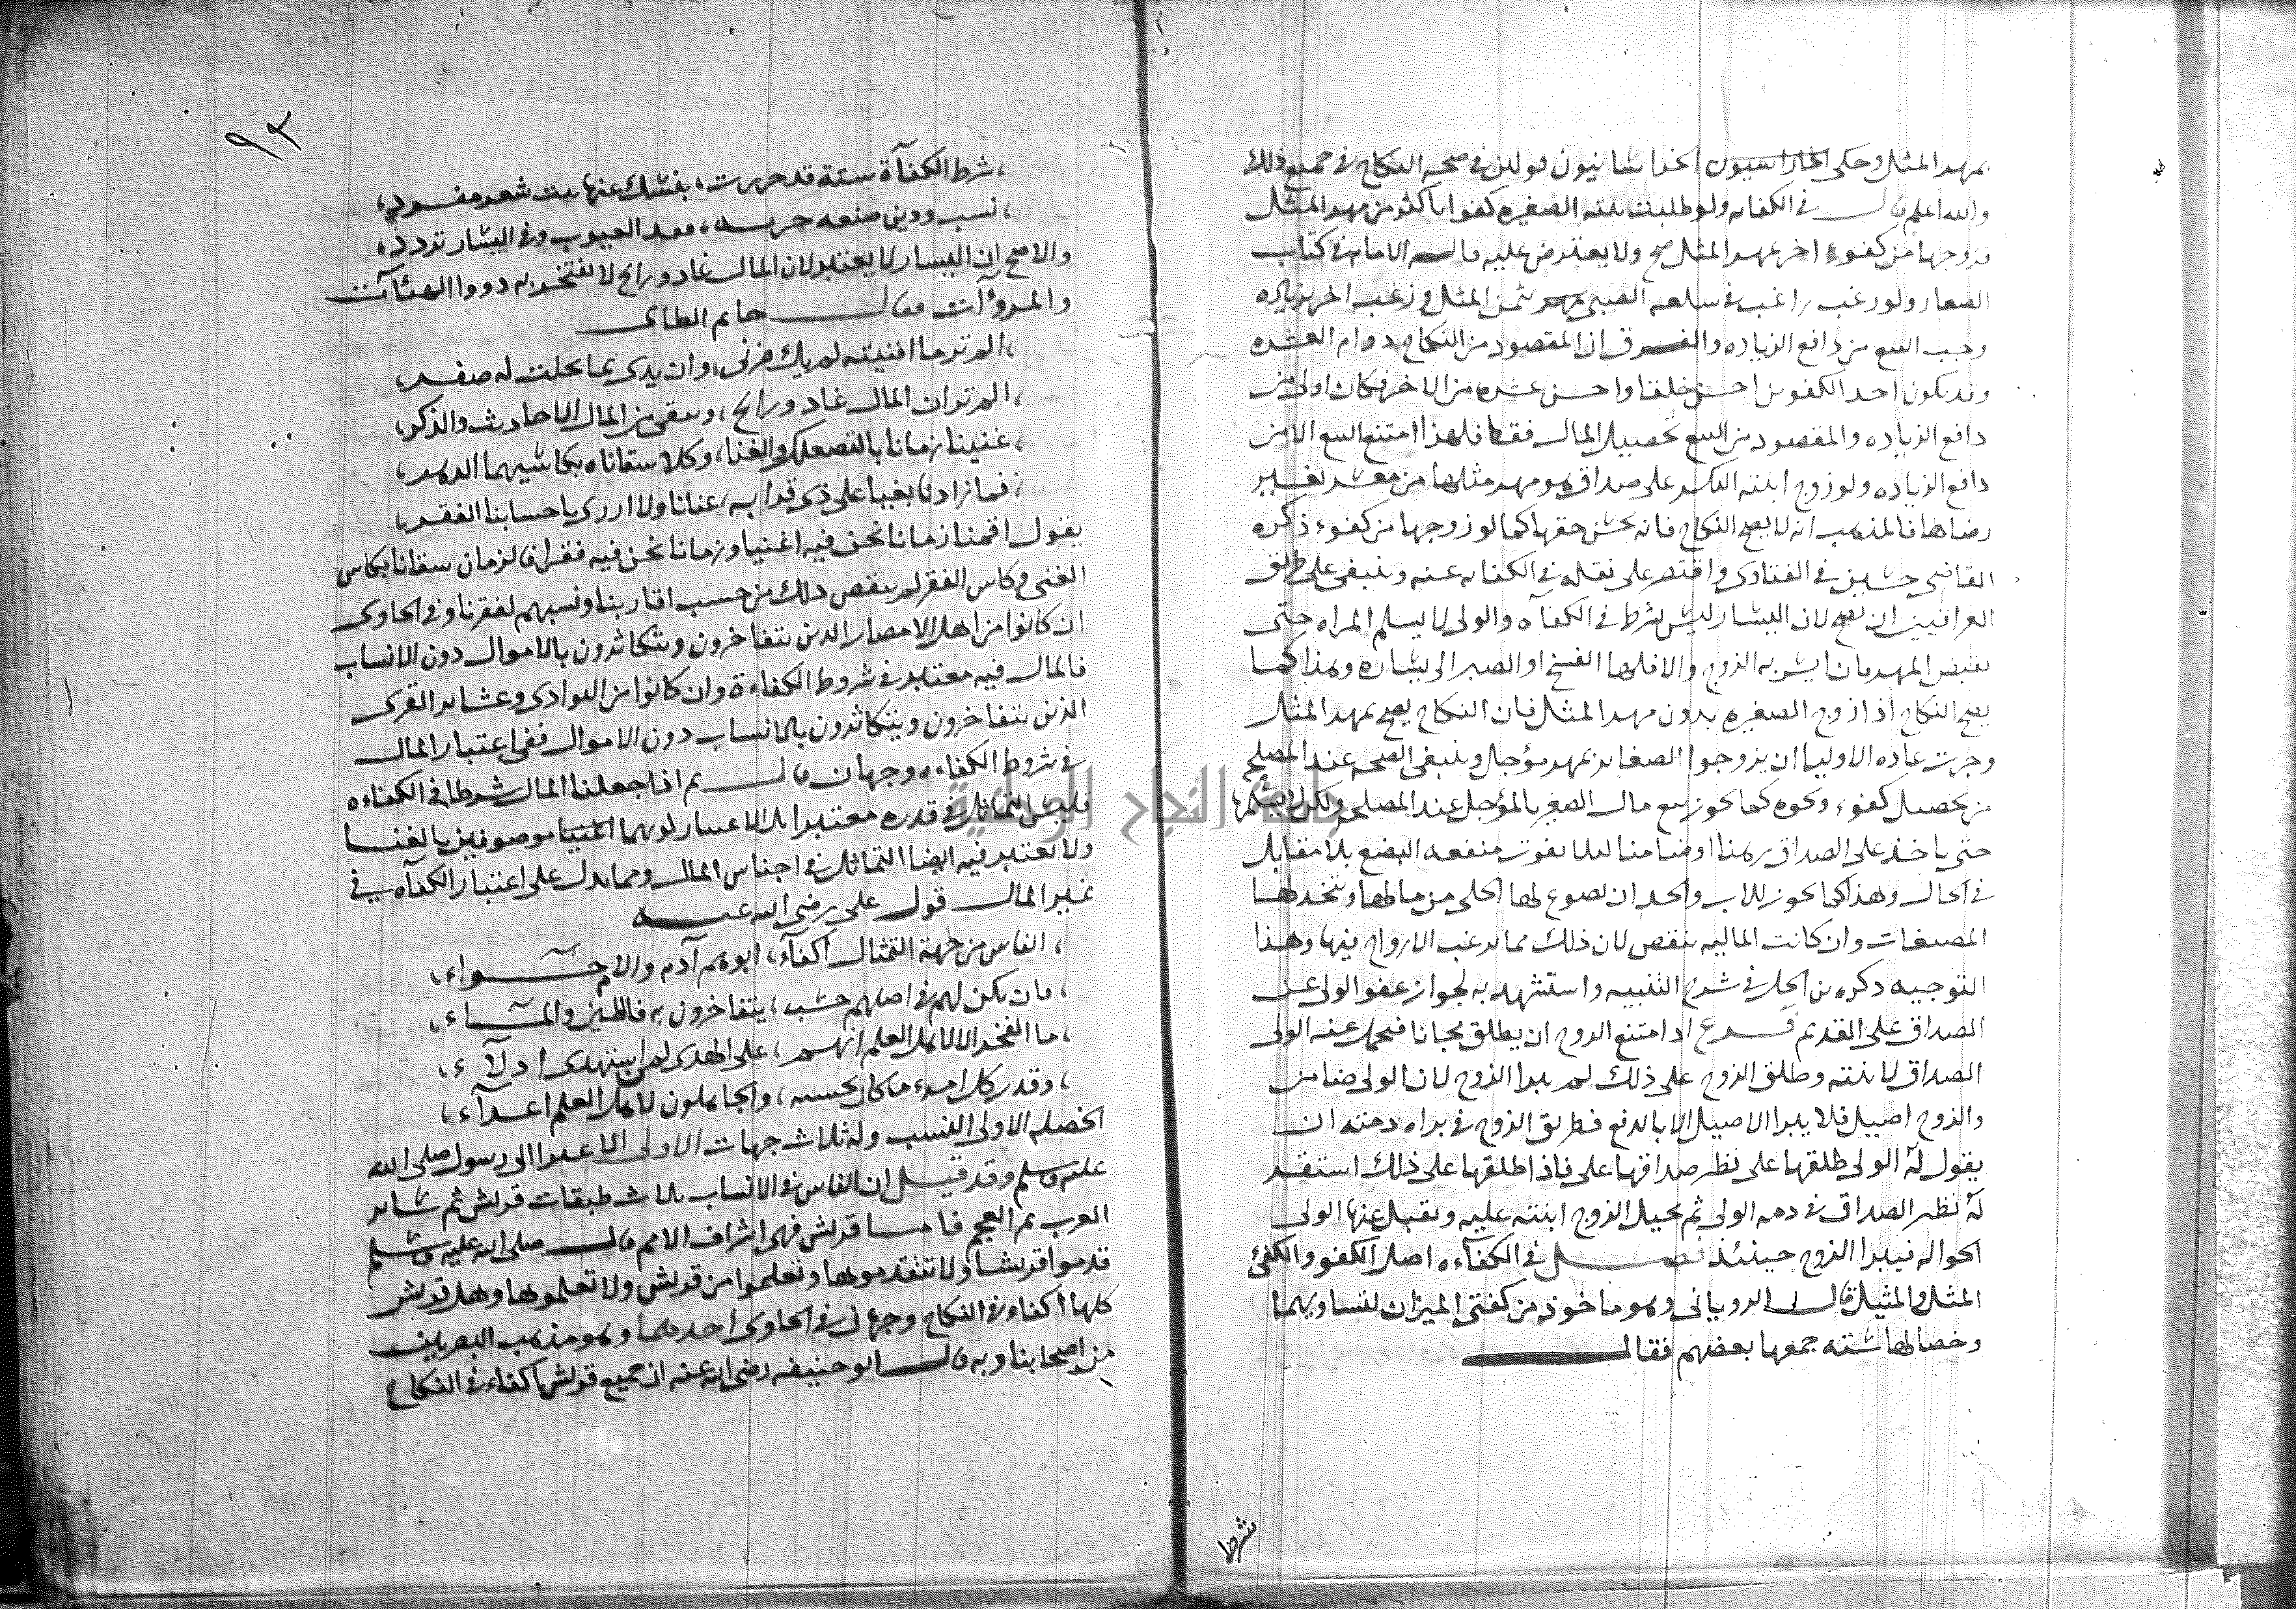 بمهر المثل وحكى الخراسانيون قولين في صحه النكاح في جميع ذلك
والله اعلم قال في الكفايه ولو طلبت ابنته الصغيره كفوا باكثر من مهر المثل
فزوجها من كفوء اخر بمهر المثل صح ولا يعترض عليه قال الامام في كتاب
الصغار ولو رغب راغب في سلعه الصبي بثمن المثل ورغب اخر بزياده
وجب البيع من دافع الزياده والفرق ان المقصود من النكاح دوام العشره
وقد يكون احد الكفوين احسن خلقا واحسن عشره من الاخر فكان اولى من
دافع الزياده والمقصود من البيع تحصيل المال فقط فلهذا امتنع البيع الا من
دافع الزياده ولو زوج ابنته البكر على صداق هو مهر مثلها من معسر بغير
رضاها فالمذهب انه لا يصح النكاح فانه بخس حقها كما لو زوجها من كفوء ذكره
القاضي حسين في الفتاوى واقتصر على نقله في الكفايه عنه وينبغي على طريق
العراقيين ان يصح لان اليسار ليس بشرط في الكفآه والولى لا يسلم المراه حتى
يقبض المهر فان ايسر به الزوج والا فلها الفسخ او الصبر الى يساره وهذا كما
يصح النكاح اذا زوج الصغيره بدون مهر المثل فان النكاح يصح بمهر المثل
وجرت عاده الاوليا ان يزوجوا الصغاير بمهر مؤجل وينبغى الصحه عند المصلح
من تحصيل كفوء ونحوه كما يجوز بيع مال الصغير بالمؤجل عند المصلحه ولكن لا يسلمها
حتى ياخذ على الصداق رهنا او ضامنا ليلا يفوت منفعه البضع بلا مقابل
في الحال وهذا كما يجوز للاب والجد ان يصوغ لها الحلى من مالها ويتخذ لها
المصبغات وان كانت الماليه تنقص لان ذلك مما يرغب الازواج فيها وهذا
التوجيه ذكره بن الحل في شرح التنبيه واستشهد به لجواز عفو الولى عن
الصداق على القديم فرع اذا امتنع الزوج ان يطلق مجانا فتحمل عنه الولى
الصداق لابنته وطلق الزوج على ذلك لم يبرا الزوج لان الولى ضامن
والزوج اصيل فلا يبرا الاصيل الا بالدفع فطريق الزوج في براه ذمته ان
يقول له الولى طلقها على نظر صداقها على فاذا طلقها على ذلك استقر
له نظر الصداق في ذمه الولى ثم يحيل الزوج ابنته عليه ويقبل عنها الولى
الحواله فيبرا الزوج حينئذ فصل في الكفآه اصل الكفو والكفئ
المثل والمثيل قال الرويانى وهو ماخوذ من كفتى الميزان لتساويهما
وخصالها سته جمعها بعضهم فقال
شرط
٩٣
شرط الكفآة ستة قد حررت، ينبيك عنها بيت شعر مفرد،
نسب ودين صنعه حريه، فقد العيوب وفي اليسار تردد،
والاصح ان اليسار لا يعتبر لان المال غاد ورايح لا يفتخر به ذووا الهئآت
والمروآت فقال حاتم الطائى
الم تر ما افنيته لم يك ضرنى، وان يدى مما بخلت له صفر،
الم تر ان المال غاد ورايح، ويبقى من المال الاحاديث والذكر،
غنينا زمانا بالتصعلك والغنا، وكلا سقاناه بكاسيهما الدهر،
فما زادنا بغيا على ذى قرابه، غنانا ولا ازرى باحسابنا الفقر،
يقول اقمنا زمانا نحن فيه اغنيا وزمانا نحن فيه فقرا فالزمان سقانا بكاس
الغنى وكاس الفقر لم ينقص ذلك من حسب اقاربنا ونسبهم لفقرنا وفي الحاوى
ان كانوا من اهل الامصار الذين يتفاخرون ويتكاثرون بالاموال دون الانساب
فالمال فيه معتبر في شروط الكفاءة وان كانوا من البوادى وعشاير القرى
الذين يتفاخرون ويتكاثرون بالانساب دون الاموال ففي اعتبار المال
في شروط الكفاءه وجهان قال ثم اذا جعلنا المال شرطا في الكفاءه
فليس التماثل في قدره معتبرا بل الاعتبار لونهما اغنيا موصوفين بالغنا
ولا يعتبر فيه ايضا التماثل في اجناس المال ومما يدل على اعتبار الكفآه في
غير المال قول على رضى الله عنه
الناس من جهة التمثال اكفآء، ابوهم آدم والام حوآء،
فان يكن لهم في اصلهم حسب، يتفاخرون به فالطين والمآء،
ما الفخر الا لاهل العلم انهم، على الهدى لمن استهدى ادلآء،
وقدر كل امرء ما كان يحسنه، والجاهلون لاهل العلم اعدآء،
الخصله الاولى النسب وله ثلاث جهات الاولى الاعترا الى رسول صلى الله
عليه وسلم وقد قيل ان الناس في الانساب ثلاث طبقات قريش ثم ساير
العرب ثم العجم فاما قريش فهى اشراف الامم قال صلى الله عليه وسلم
قدموا قريشا ولا تتقدموها وتعلموا من قريش ولا تعلموها وهل قريش
كلها اكفاء في النكاح وجهان في الحاوى احدهما وهو مذهب البصريين
من اصحابنا وبه قال ابو حنيفه رضى الله عنه ان جميع قريش اكفاء في النكاح
جامعة النجاح الوطنية